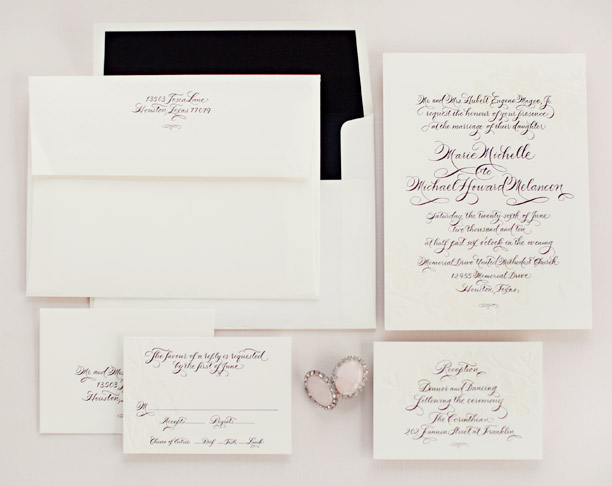 13503 Tosca Lane
Houston, Texas 77079
Mr. and Mrs. Hubert Eugene Magee, Jr.
request the honour of your presence
at the marriage of their daughter
Marie Michelle
to
Michael Howard Melancon
Saturday, the twenty-sixth of June
two thousand and ten
at half past six o'clock in the evening
Memorial Drive United Methodist Church
12955 Memorial Drive
Houston, Texas
Mr. and Mrs.
13503
Houston
The favour of a reply is requested
by the first of June
M
Accepts Regrets
Choice of Entrée Beef Lamb
Reception
Dinner and Dancing
following the ceremony
The Corinthian
202 Fannin Street at Franklin